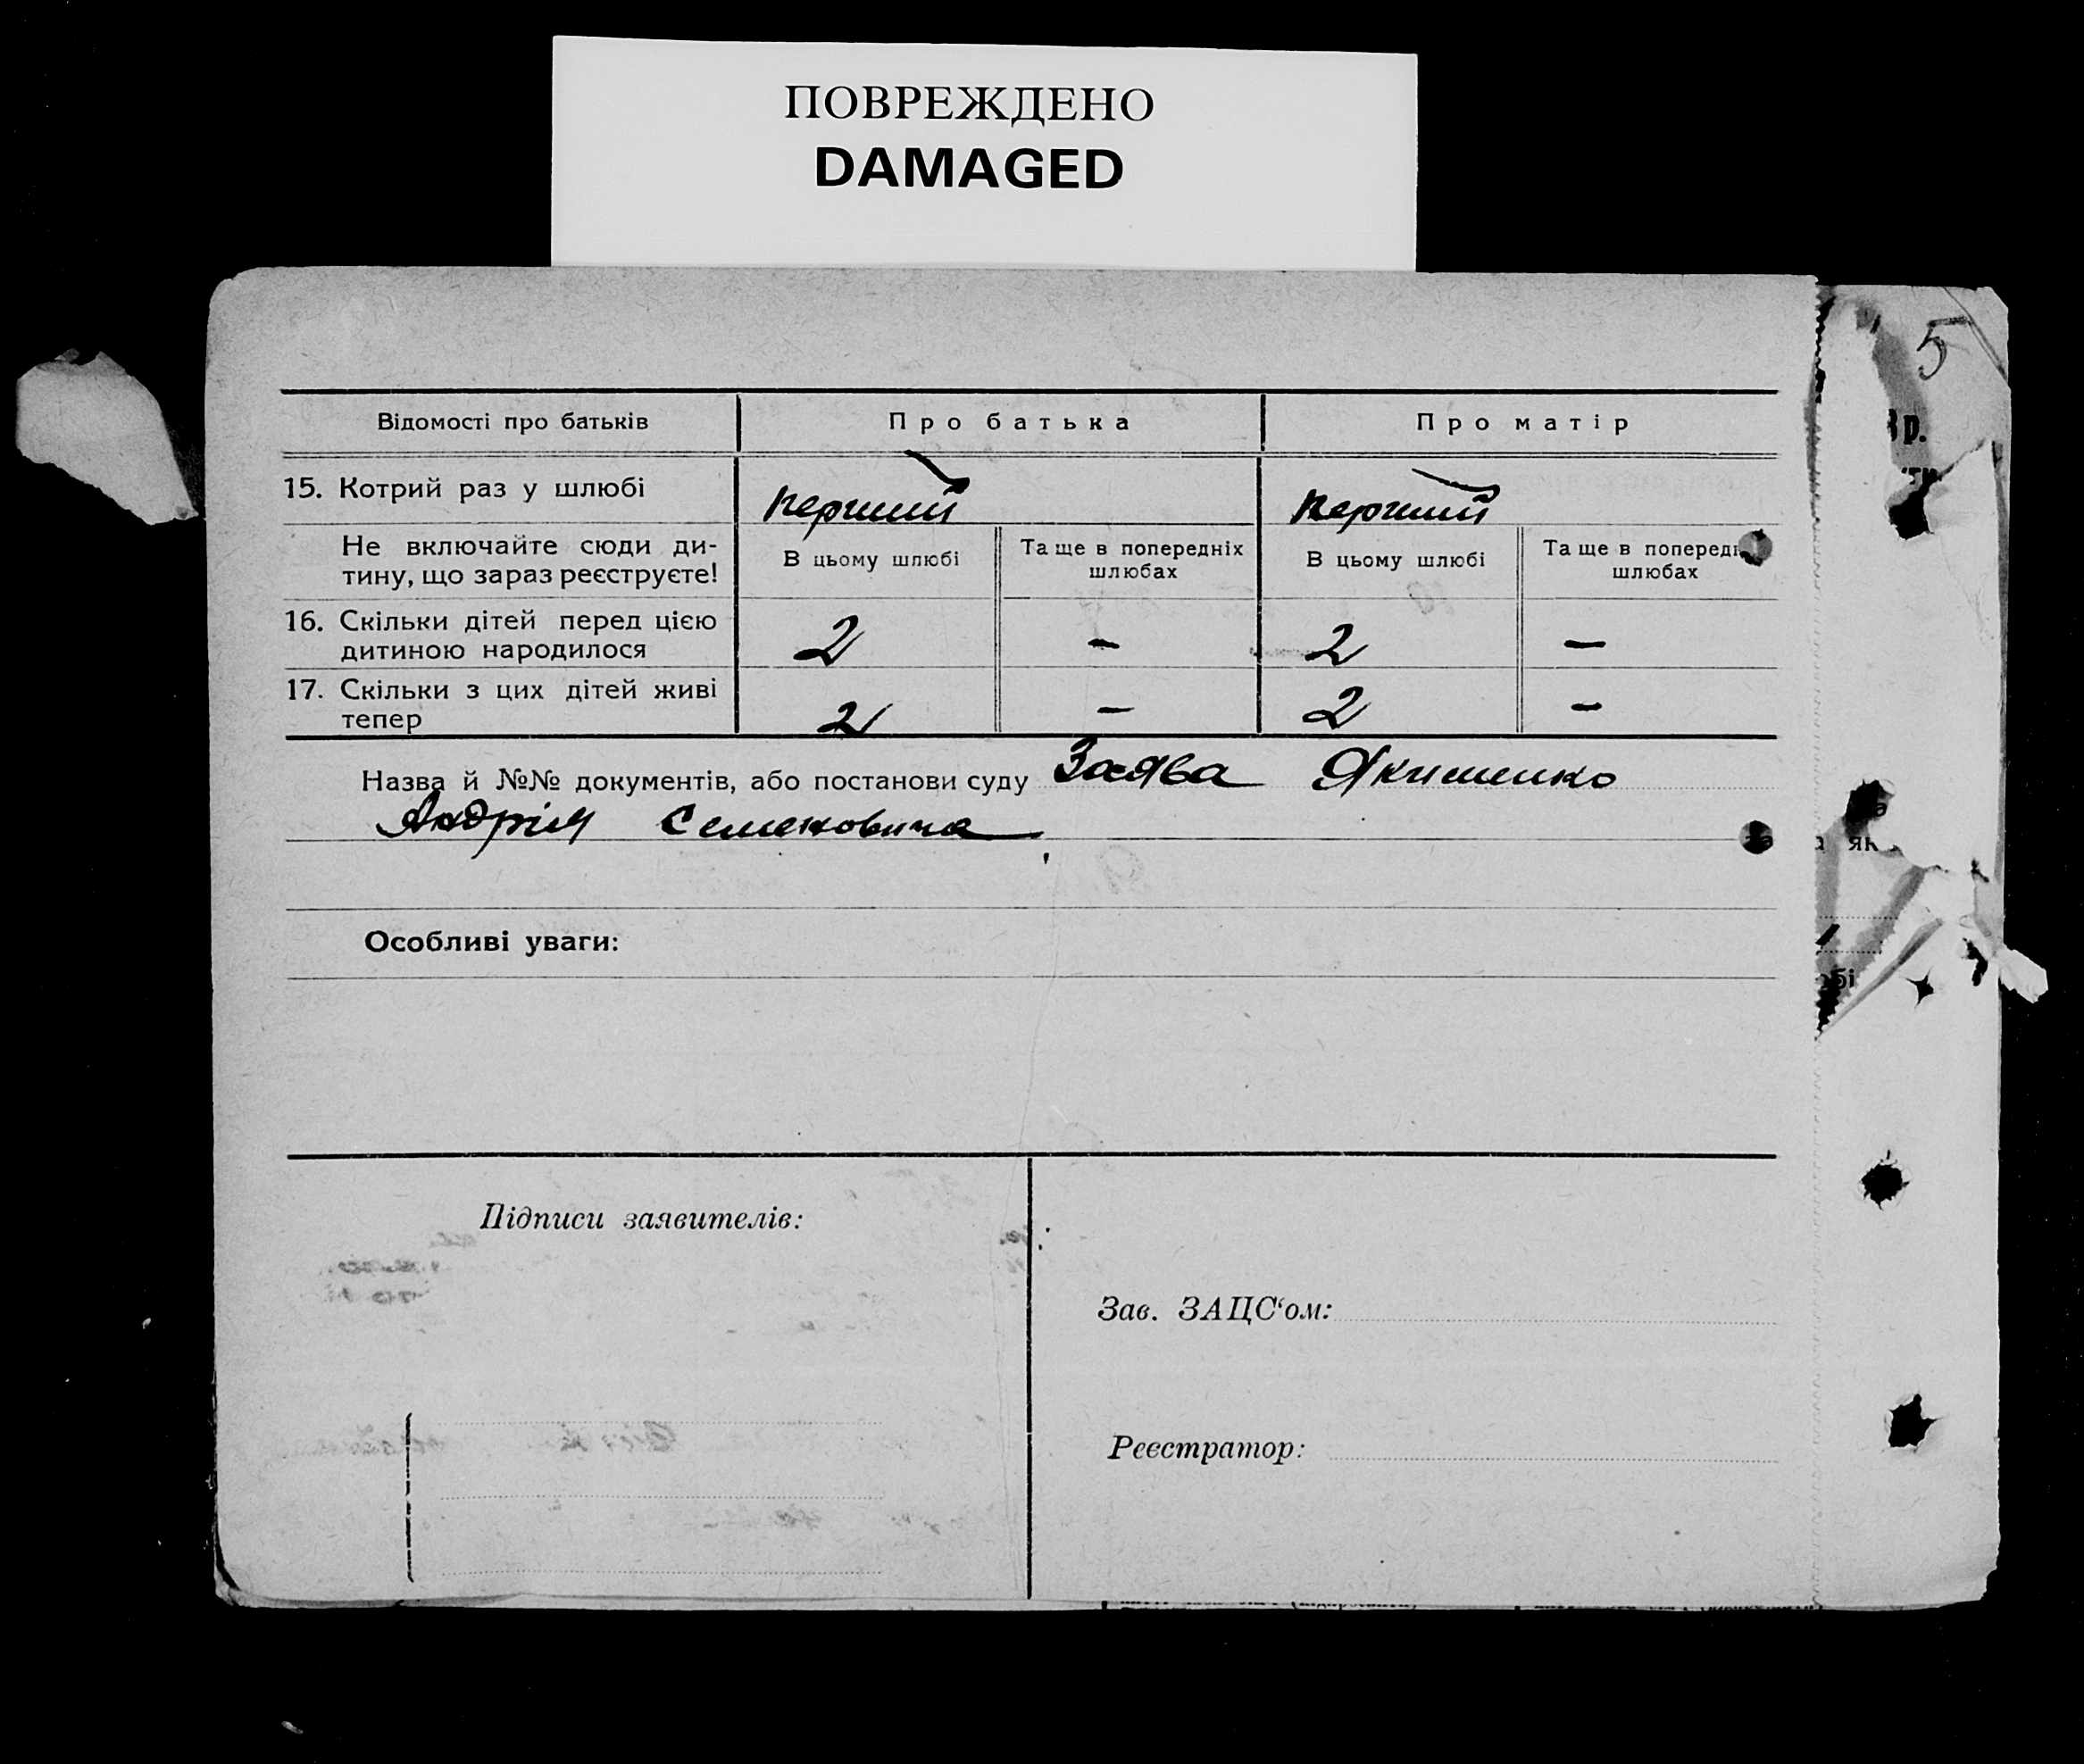 ПОВРЕЖДЕНО
DAMAGED
5
Відомості про батьків
Про батька
Про матір
р.
15. Котрий раз у шлюбі
перший
перший
Не включайте сюди ди-
тину, що зараз реєструєте!
В цьому шлюбі
Та ще в попередніх
шлюбах
В цьому шлюбі
Та ще в
шлюбах
16. Скільки дітей перед цією
дитиною народилося
2
–
2
–
17. Скільки з цих дітей живі
тепер
2
–
2
–
Назва й №№ документів, або постанови суду Заява Якименко
Андрія Семеновича
Особливі уваги:
Підписи заявителів:
Зав. ЗАЦС‘ом:
Реєстратор: